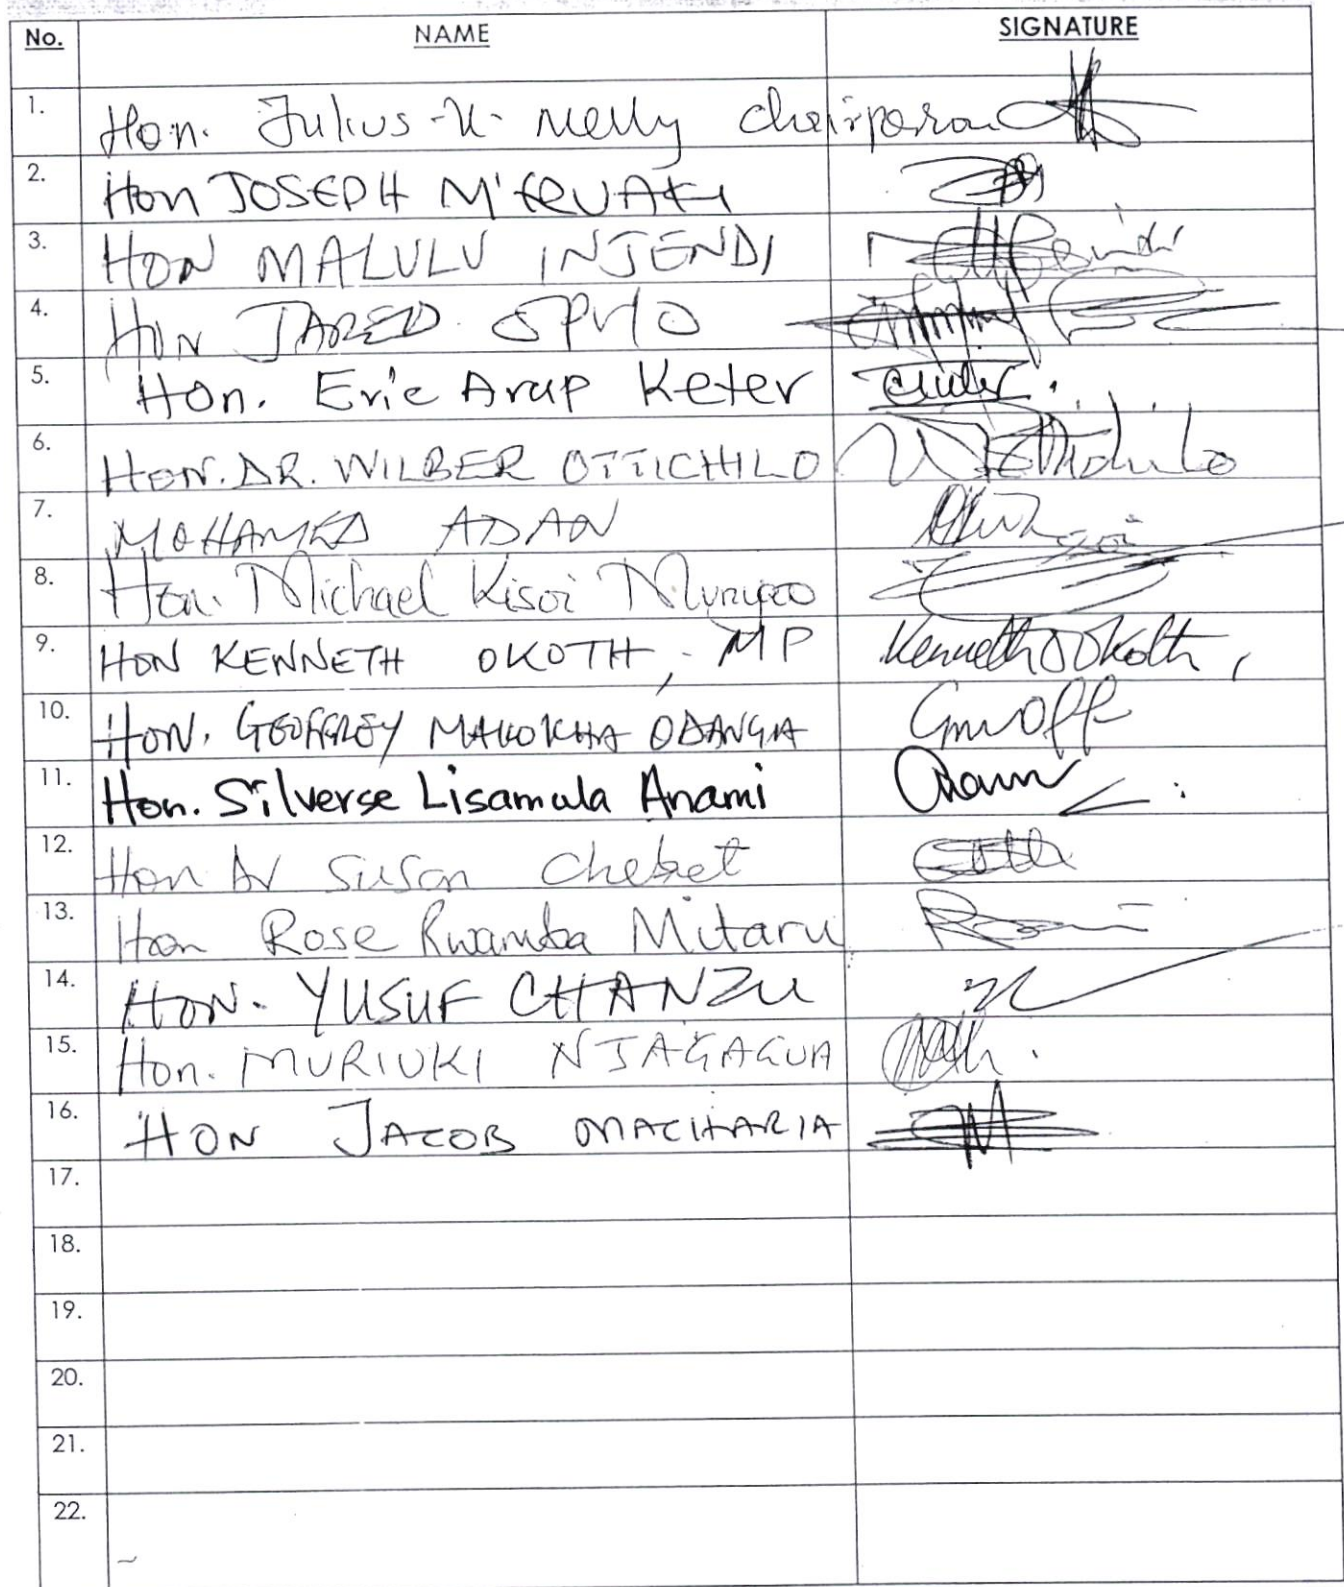 No. NAME SIGNATURE
1. Hon. Julius -K- Melly Chairperson
2. Hon JOSEPH M'ERUAKI
3. HON MALULU INJENDI
4. HON JARED OPIYO
5. Hon. Eric Arap Keter
6. HON. DR. WILBER OTTICHILO
7. MOHAMED ADAN
8. Hon. Michael Kisoi
9. HON KENNETH OKOTH, MP Kenneth O Okoth
10. HON. GEOFFREY MAKOKHA ODANGA
11. Hon. Silverse Lisamula Anami
12. Hon Dr Susan Chebet
13. Hon Rose Rwamba Mitaru
14. HON. YUSUF CHANZU
15. Hon. MURIUKI NJAGAGUA
16. HON JACOB MACHARIA
17.
18.
19.
20.
21.
22.